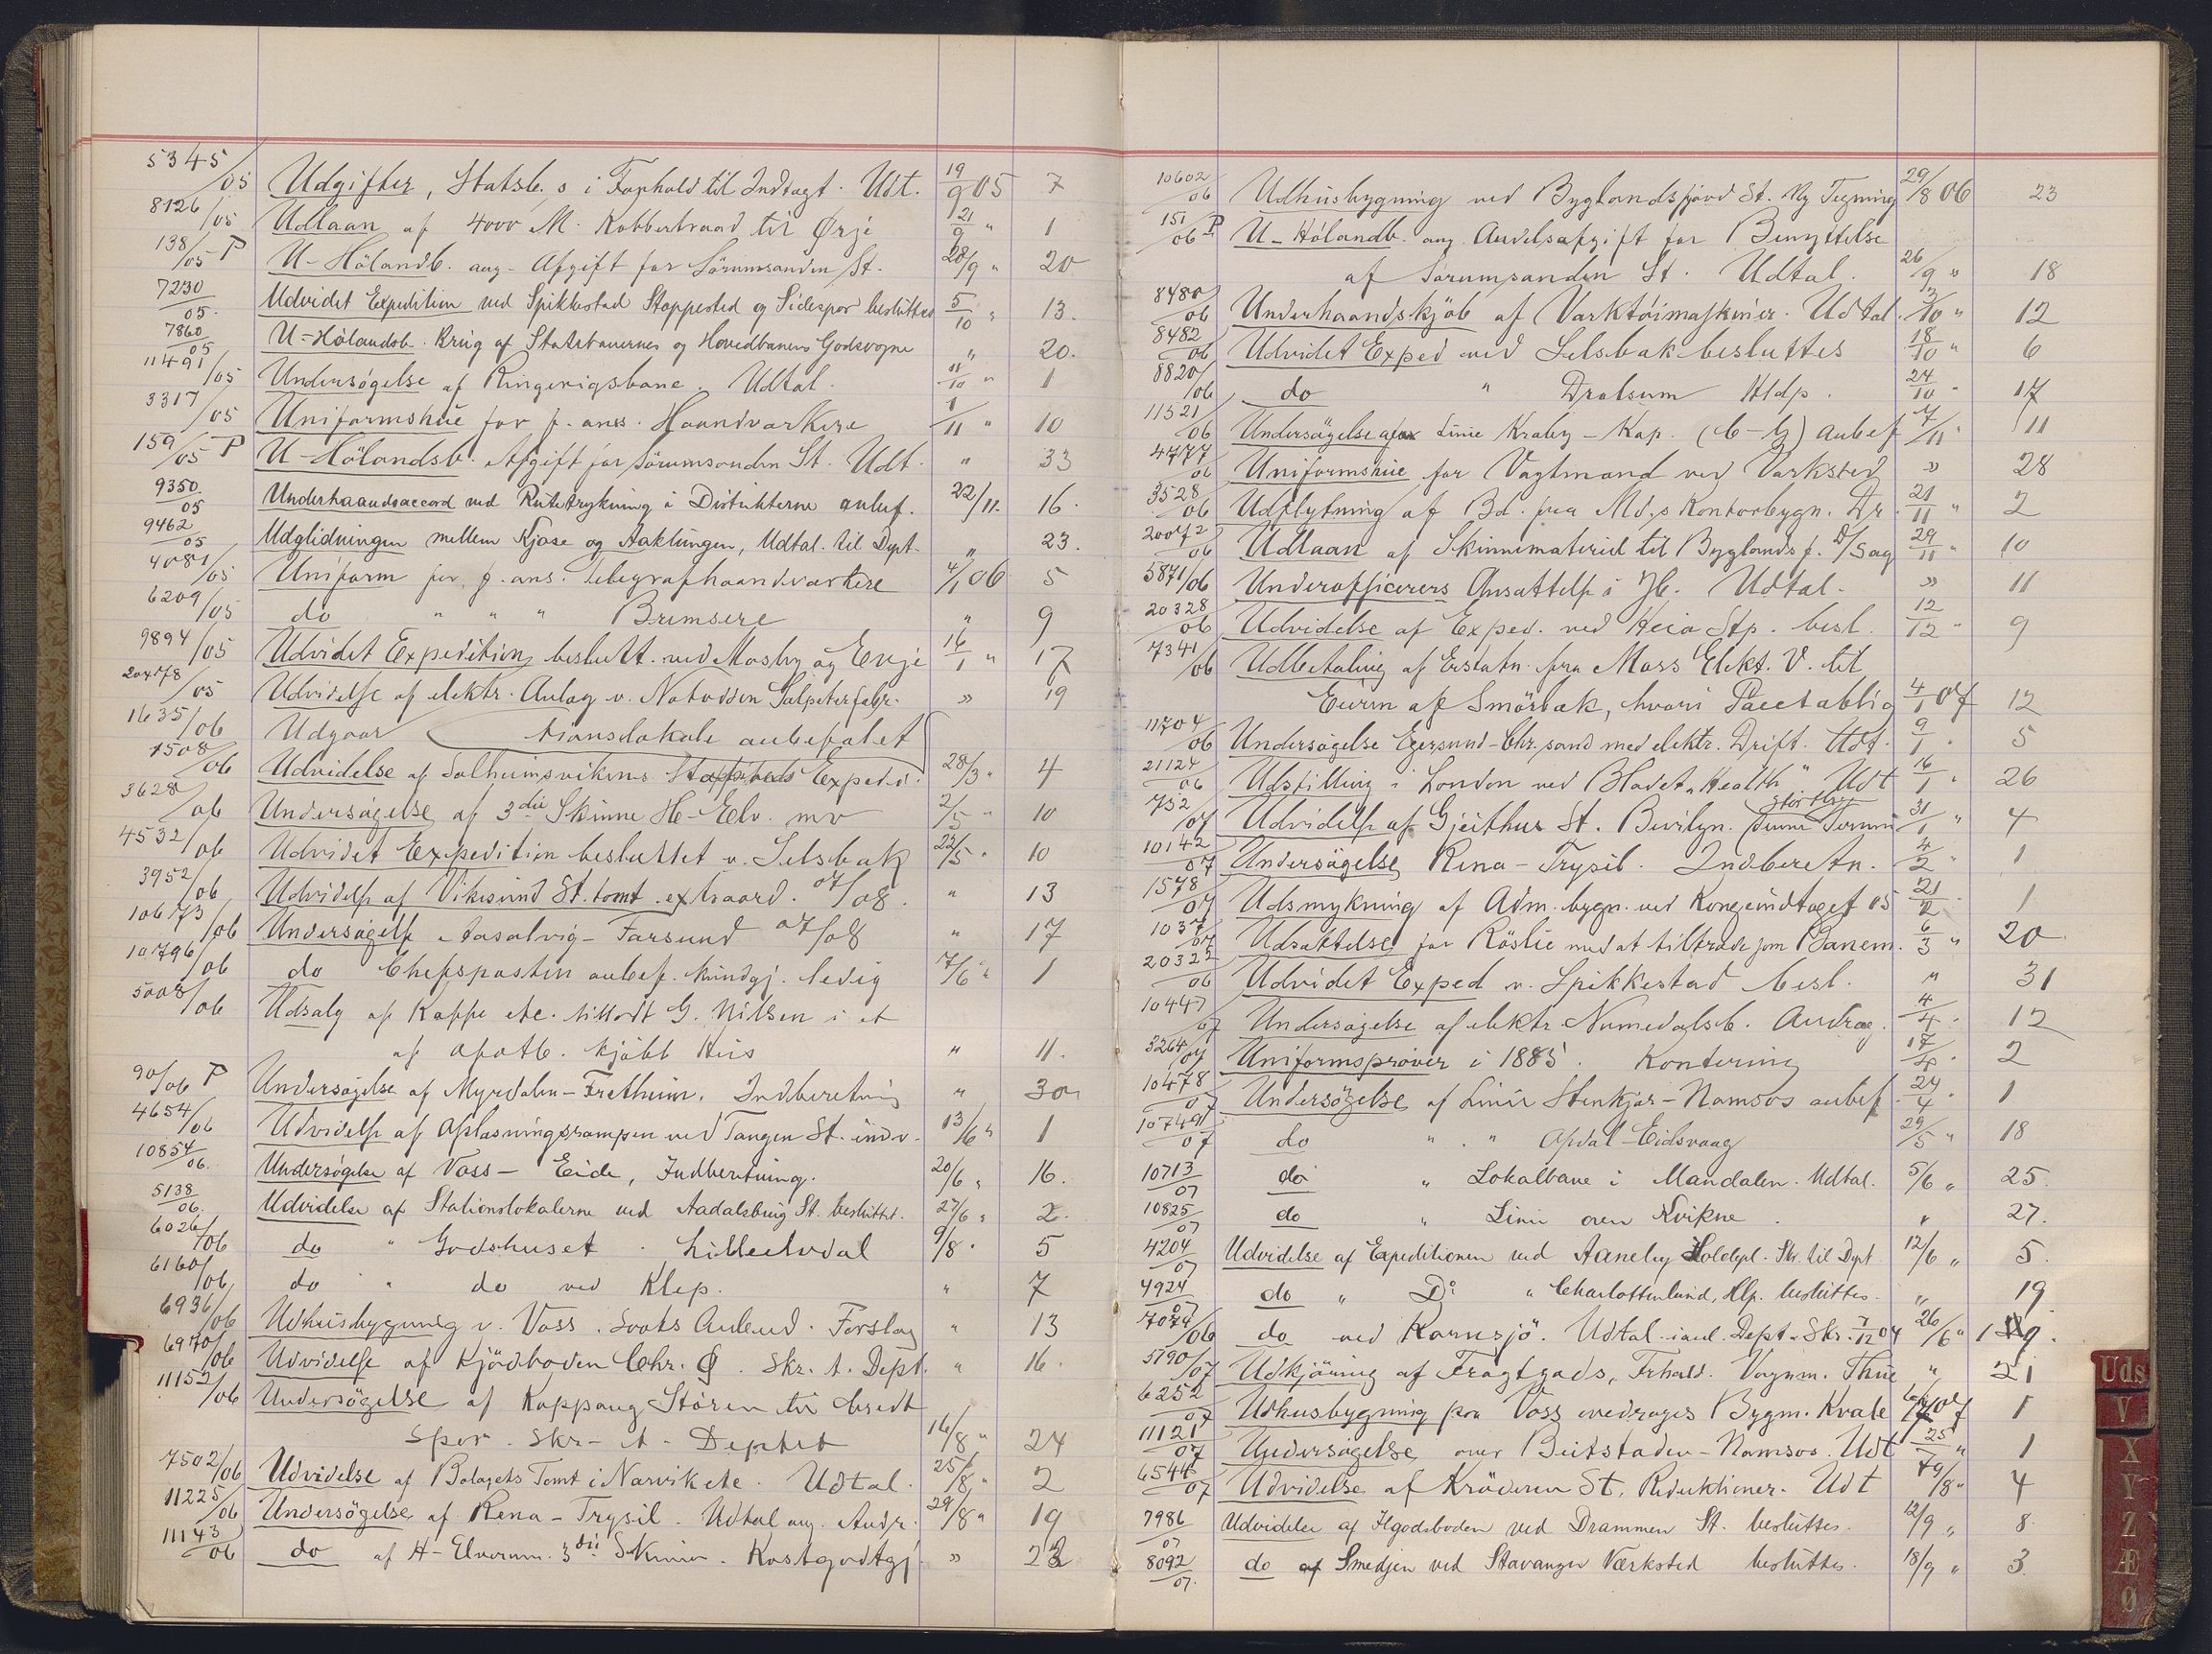 5345/05 Udgifter, Statsb.s i Forhold til Indtægt. Udt. 19/9 05 7
8126/05 Udlaan af 4000 M. Kobbertraad til Ørje 21/9 " 1
138/05 P U-Hölandb. ang. Afgift for Sörumsanden St. 28/9 " 20
7230/05. Udvidet Expedition ved Spikkestad Stoppested og Sidespor besluttes 5/10 " 13.
7860/05 U-Hölandsb. Brug af Statsbanernes og Hovedbanens Godsvogne " 20.
11491/05 Undersögelse af Ringerigsbane. Udtal. 11/10 " 1
3317/05 Uniformshue for f. ans. Haandværkere 1/11 " 10
159/05 P U-Hölandsb. Afgift for Sörumsanden St. Udt. " 33
9350/05 Underhaandsaccord ved Rutetrykning i Distrikterne anbef. 22/11. 16.
9462/05 Udglidningen mellem Kjose og Aaklungen, Udtal. til Dept. " 23.
4081/05 Uniform for f. ans. Telegrafhaandværkere 4/1 06 5
6209/05 do " " " Bremsere " 9
9894/05 Udvidet Expedition beslutt. ved Mosby og Evje 16/1 " 17
20478/05 Udvidelse af elektr. Anlæg v. Notodden Salpeterfabr. " 19
1635/06 Udgaar tionslokale anbefalet
1508/06 Udvidelse af Solheimsvikens Stoppesteds Exped. 28/3 " 4
3628/06 Undersögelse af 3die Skinne H-Elv. mv 2/5 " 10
4532/06 Udvidet Expedition besluttet v. Selsbak 22/5 " 10
3952/06 Udvidelse af Vikesund St. tomt. extraord. 07/08. " 13
10673/06 Undersögelse Aasalvig-Farsund 07/08 " 17
10796/06 do Chefsposten anbef. kundgj. ledig 7/6 " 1
5008/06 Udsalg af Kaffe etc. tilladt G. Nilsen i et
af apoth. kjöbt Hus " 11.
90/06 P Undersögelse af Myrdalen-Fretheim. Indberetning " 30
4654/06 Udvidelse af Aflæsningsrampen ved Tangen St. indv. 13/6 " 1
10854/06. Undersögelse af Voss- Eide, Indberetning. 20/6 " 16.
5138/06. Udvidelse af Stationslokalerne ved Aadalsbrug St. besluttet. 27/6 " 2.
6026/06 do " Godshuset . Lilleelvdal 9/8 " 5
6160/06 do " do ved Klep. " 7
6936/06 Udhusbygning v. Voss. Forslag " 13
6970/06 Udvidelse af Kjödboden Chr. Ø. Skr. t. Dept. " 16.
11152/06 Undersögelse af Koppang Stören til bredt
Spor. Skr. t. Deptet 16/8 " 24
7502/06 Udvidelse af Bolagets Tomt i Narvik etc. Udtal. 25/8 " 2
11225/06 Undersögelse af Rena-Trysil. Udtal ang. Andr. 29/8 " 19
11143/06 do af H-Elverum 3die Skinne. Kostgodtgj. " 22
10602/06 Udhusbygning ved Byglandsfjord St. Ny Tegning 29/8 06 23
151/06 P U-Hölandb. ang. Andelsafgift for Benyttelse
af Sörumsanden St. Udtal. 26/9 " 18
8480/06 Underhaandskjöb af Værktöimaskiner. Udtal. 3/10 " 12
8482/06 Udvidet Exped ved Selsbak besluttes 18/10 " 6
8820/06 do " Drolsum Hldp. 24/10 " 17
11521/06 Undersögelse Linie Kraby-Kap. (C-G) anbef 7/11 " 11
4777/06 Uniformshue for Vagtmand ved Værksted " 28
3528/06 Udflytning af Bd. fra Md.s Kontorbygn. Dr. 21/11 " 2
20072/06 Udlaan af Skinnemateriel til Byglandsf. D/Sag 29/11 " 10
5871/06 Underofficerers Ansættelse i Jb. Udtal. " 11
20328/06 Udvidelse af Exped. ved Heia Stp. besl. 12/12 " 9
7341/06 Udbetaling af Erstatn. fra Moss Elekt. V. til
Eieren af Smörbæk, hvori Pacetabbig 4/1 07 12
11704/06 Undersögelse Egersund-Chr.sand med elektr. Drift. Udt. 9/1 " 5
21124/06 Udstilling i London ved Bladet "Health" Udt 16/1 " 26
732/07 Udvidelse af Gjeithus St. Bevilgn. större 31/1 " 4
10142/07 Undersögelse Rena-Trysil. Indberetn. 4/2 " 1
1578/07 Udsmykning af Adm. bygn. ved Kongeindtoget 05 21/2 " 1
1037/07 Udsættelse for Röslie med at tiltræde som Banem. 6/3 " 20
20322/06 Udvidet Exped v. Spikkestad besl. " 31
10447/07 Undersögelse af elektr. Numedalsb. Andrag. 4/4 " 12
3264/07 Uniformspröver i 1885. Kontering 17/4 " 2
10478/07 Undersögelse af Linie Stenkjær-Namsos anbef. 24/4 " 1
10749/07 do " " Opdal-Eidsvaag 29/5 " 18
10713/07 do " Lokalbane i Mandalen. Udtal. 5/6 " 25.
10825/07 do " Linie over Kvikne. " 27.
4204/07 Udvidelse af Expeditionen ved Aaneby Holdepl. Skr. til Dept 12/6 " 5.
4924/07 do " Do " Charlottenlund, Hlp. besluttes. " 19
7074/06 do ved Kornsjö. Udtal. i anl. Dept. Skr. 7/12 04 26/6 " 19.
5190/07 Udkjöring af Fragtgods, Frhald. Vognm. Thue " 21
6252/07 Udhusbygning fra Voss overdrages Bygm. Kvale 07 1
11121/07 Undersögelse over Beitstaden-Namsos. Udt 25/7 " 1
6544/07 Udvidelse af Kröderen St. Reduktioner. Udt 19/8 " 4
7986/07 Udvidelse af Ilgodsboden ved Drammen St. besluttes. 12/9 " 8.
8092/07. do af Smedjen ved Stavanger Værksted besluttes. 18/9 " 3.
Uds
V
X
Y
Z
Æ
Ø